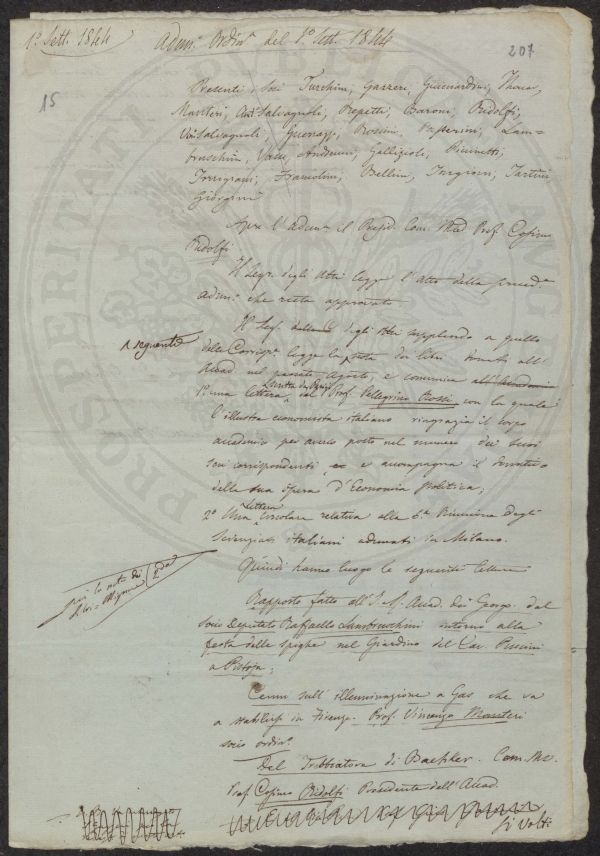 1º Sett. 1844
Adunª Ordinª del 1º Sett. 1844
207
15
Presenti i Soci Turchini, Gazzeri, Guicciardini, Thaer,
Manteri, Antº Salvagnoli, Repetti, Baroni, Ridolfi,
Vinº Salvagnoli, Guerazzi, Rosini, Passerini, Lam-
bruschini, Vaselli, Andreucci, Gallizioli, Piccinetti,
Torrigiani, Franceschi, Bellini, Inghirami, Tartini,
Giorgini
Apre l'Adunª il Presid. Com. March. Prof. Cosimo
Ridolfi
Il Segrº degli Atti legge l'atto della preced.ª
Adunª che resta approvato
Il Segrº degli Atti supplendo a quello
delle Corrispº legge la nota dei libri donati all'
Acad nel passato Agosto, e comunica
a seguente
1º una lettera scritta da Parigi dal Prof. Pellegrino Rossi con la quale
l'illustre economista italiano ringrazia il corpo
accademico per averlo posto nel numero dei suoi
soci corrispondenti, e accompagna il donativo
della sua opera d'Economia politica;
2º Una Lettera circolare relativa alla 6ª Riunione degli
Scienziati italiani adunati in Milano.
Quindi hanno luogo le seguenti letture
per la nota dei
libri
Rapporto fatto all'I. R. Acad. dei Georgº dal
Socio Deputato Raffaello Lambruschini intorno alla
festa delle spighe nel Giardino del Cav. Puccini
a Pistoja;
Cenni sull'illuminazione a Gas che va
a stabilirsi in Firenze. Prof. Vincenzo Manteri
socio ordinº
Del Trebbiatore di Baepker. Com. Me.
Prof Cosimo Ridolfi Presidente dell'Acad.
Si Volti